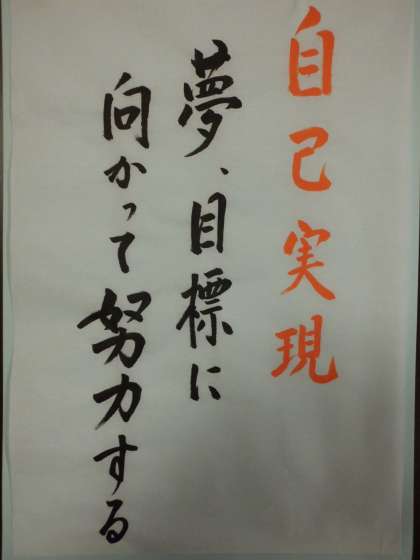 自己実現
夢、目標に
向かって努力する